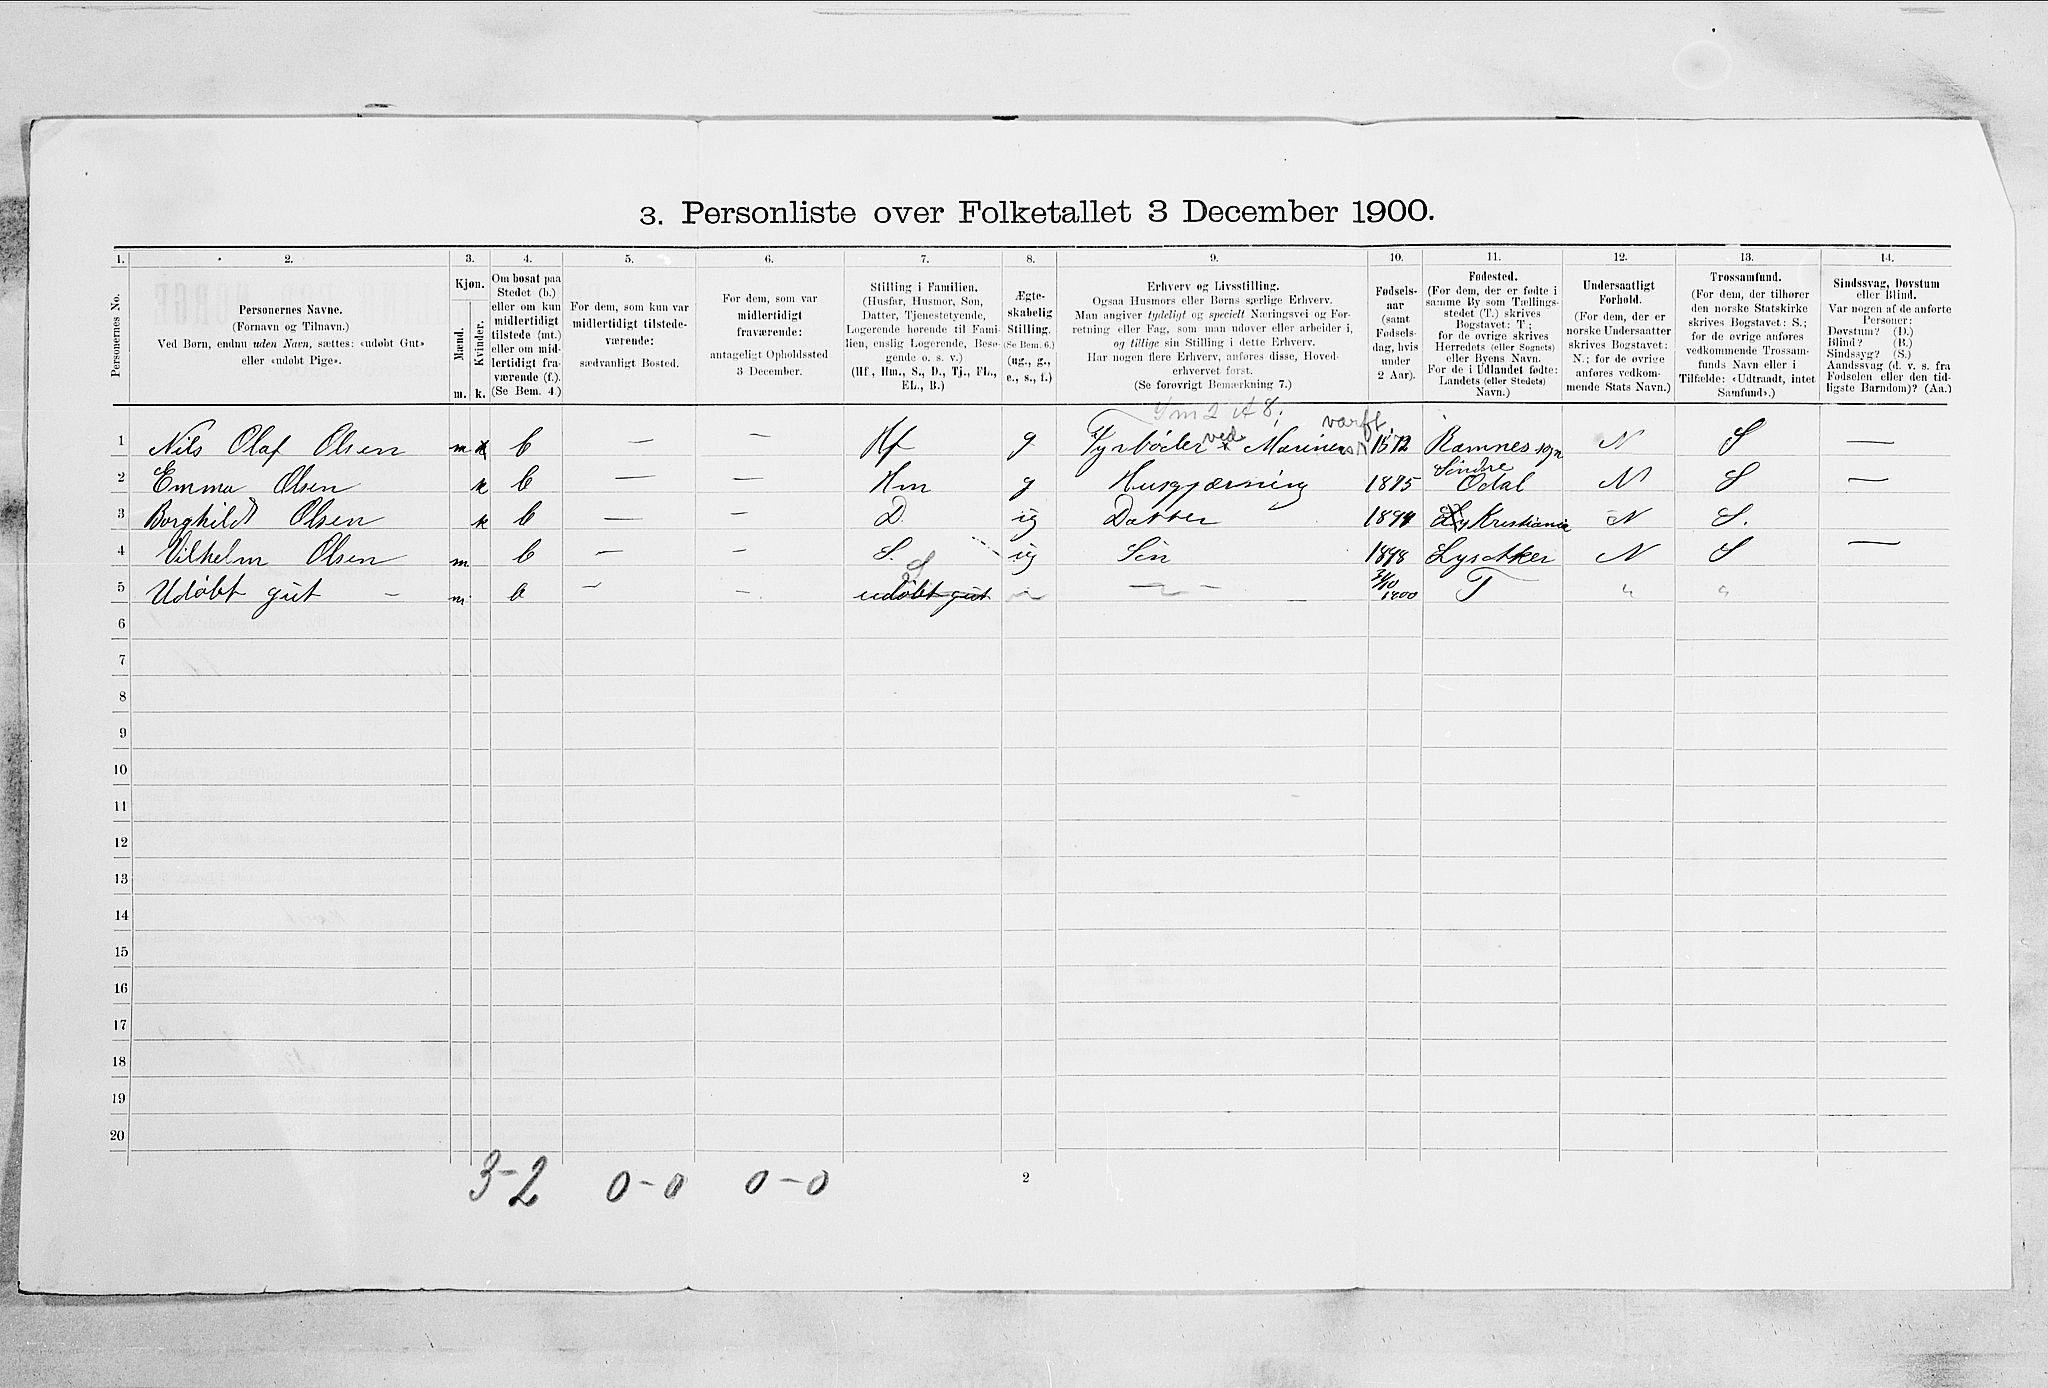 3. Personliste over Folketallet 3 December 1900.
1. 2. 3. 4. 5. 6. 7. 8. 9. 10. 11. 12. 13. 14.
Personernes No.
Personernes Navne.
(Fornavn og Tilnavn.)
Ved Børn, endnu uden Navn, sættes: «udøbt Gut»
eller «udøbt Pige».
Kjøn.
Mænd.
Kvinder.
m. k.
Om bosat paa
Stedet (b.)
eller om kun
midlertidigt
tilstede (mt.)
eller om mid-
lertidigt fra-
værende (f.).
(Se Bem. 4.)
For dem, som kun var
midlertidigt tilstede-
værende:
sædvanligt Bosted.
For dem, som var
midlertidigt
fraværende:
antageligt Opholdssted
3 December.
Stilling i Familien.
(Husfar, Husmor, Søn,
Datter, Tjenestetyende,
Logerende hørende til Fami-
lien, enslig Logerende, Besø-
gende o. s. v.)
(Hf., Hm., S., D., Tj., FL.,
EL., B.)
Ægte-
skabelig
Stilling.
(Se Bem. 6.)
(ug., g.,
e., s., f.)
Erhverv og Livsstilling.
Ogsaa Husmors eller Børns særlige Erhverv.
Man angiver tydeligt og specielt Næringsvei og For-
retning eller Fag, som man udøver eller arbeider i,
og tillige sin Stilling i dette Erhverv.
Har nogen flere Erhverv, anføres disse, Hoved-
erhvervet først.
(Se forøvrigt Bemærkning 7.)
Fødsels-
aar
(samt
Fødsels-
dag, hvis
under
2 Aar).
Fødested.
(For dem, der er fødte i
samme By som Tællings-
stedet (T.) skrives
Bogstavet: T;
for de øvrige skrives
Herredets (eller Sognets)
eller Byens Navn.
For de i Udlandet fødte:
Landets (eller Stedets)
Navn.)
Undersaatligt
Forhold.
(For dem, der er
norske Undersaatter
skrives Bogstavet:
N.; for de øvrige
anføres vedkom-
mende Stats Navn.)
Trossamfund.
(For dem, der tilhører
den norske Statskirke
skrives Bogstavet: S.;
for de øvrige anføres
vedkommende Trossam-
funds Navn eller i
Tilfælde: «Udtraadt, intet
Samfund».)
Sindssvag, Døvstum
eller Blind.
Var nogen af de anførte
Personer:
Døvstum? (D.)
Blind? (B.)
Sindssyg? (S.)
Aandssvag (d. v. s. fra
Fødselen eller den tid-
ligste Barndom)? (Aa.)
1 Nils Olaf Olsen m b — — Hf g Fyrbøder ved Marinens værft 1872 Ramnes sogn N S —
2 Emma Olsen k b — — Hm g Husgjærning 1875 Søndre Odal N S —
3 Borghild Olsen k b — — D. ug Datter 1894 Kristiania N S.
4 Vilhelm Olsen m b — — S. ug Søn 1898 Lysakker N S —
5 Udøbt gut — m b — — udøbt gut S — — 1900 T " "
6
7
8
9
10
11
12
13
14
15
16
17
18
19
20
3-2 0-0 0-0
2